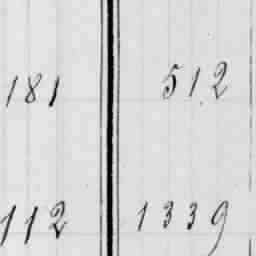 181 512
112 1339